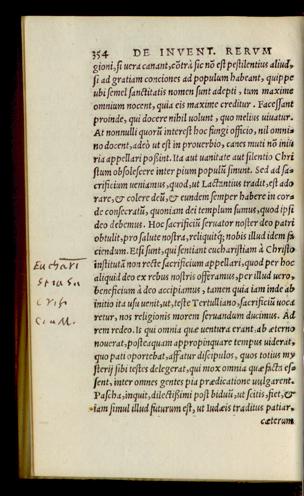 354 DE INVENT. RERVM
gioni, si vera canant, cōtrà sic nō est pestilentius aliud,
si ad gratiam conciones ad populum habeant, quippe
ubi semel sanctitatis nomen sunt adepti, tum maxime
omnium nocent, quia eis maxime creditur. Facessant
proinde, qui docere nihil volunt, quo melius uiuatur.
At nonnulli quorū interest hoc fungi officio, nil omni-
no docent, adeò ut est in prouerbio, canes muti nō iniu
ria appellari possint. Ita aut uanitate aut silentio Chri
stum obsolescere inter pium populū sinunt. Sed ad sa-
crificium ueniamus, quod, ut Lactantius tradit, est ado
rare, & colere deū, & eundem semper habere in corde
consecratū, quoniam dei templum sumus, quod ipsi
deo debemus. Hoc sacrificiū seruator noster deo patri
obtulit, pro salute nostra, reliquitq; nobis illud idem fa
ciendum. Etsi sunt, qui sentiant eucharistiam à Christo
institutā non recte sacrificium appellari, quod per hoc
aliquid deo ex rebus nostris offeramus, per illud uero,
beneficium à deo accipiamus, tamen quia iam inde ab
initio ita usu uenit, ut, teste Tertulliano, sacrificiū uoca
retur, nos religionis morem seruandum ducimus. Ad
rem redeo. Is qui omnia quæ uentura erant, ab æterno
nouerat, posteaquam appropinquare tempus uiderat,
quo pati oportebat, affatur discipulos, quos totius my
sterij sibi testes delegerat, qui mox omnia quæ facta es-
sent, inter omnes gentes pia prædicatione uulgarent.
Pascha, inquit, dilectissimi post biduū, ut scitis, fiet, &
iam simul illud futurum est, ut Iudæis traditus patiar.
cæterum
Euchari
stia Sa
crifi
cium.